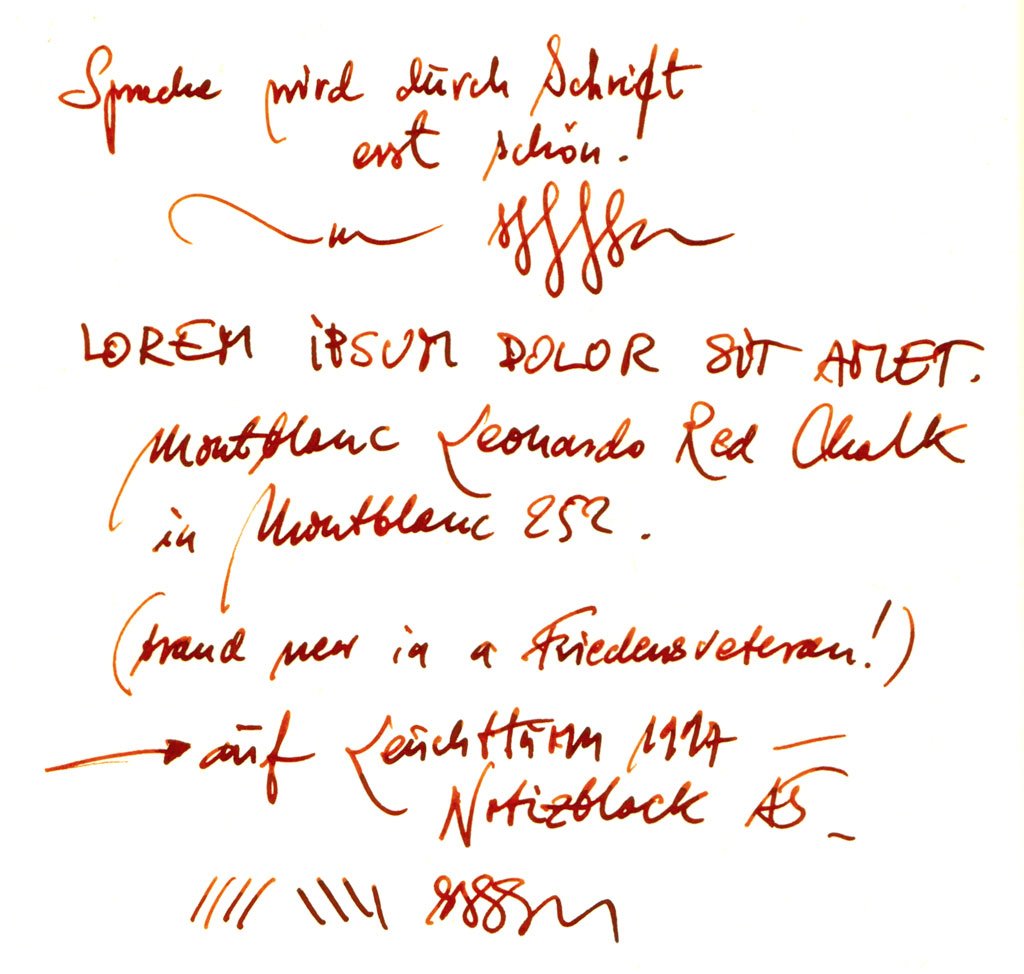 Sprache wird durch Schrift
erst schön.
LOREM IPSUM DOLOR SIT AMET.
Montblanc Leonardo Red Chalk
in Montblanc 252.
(brand new in a Friedensveteran!)
→ auf Leuchtturm 1917 —
Notizblock A5